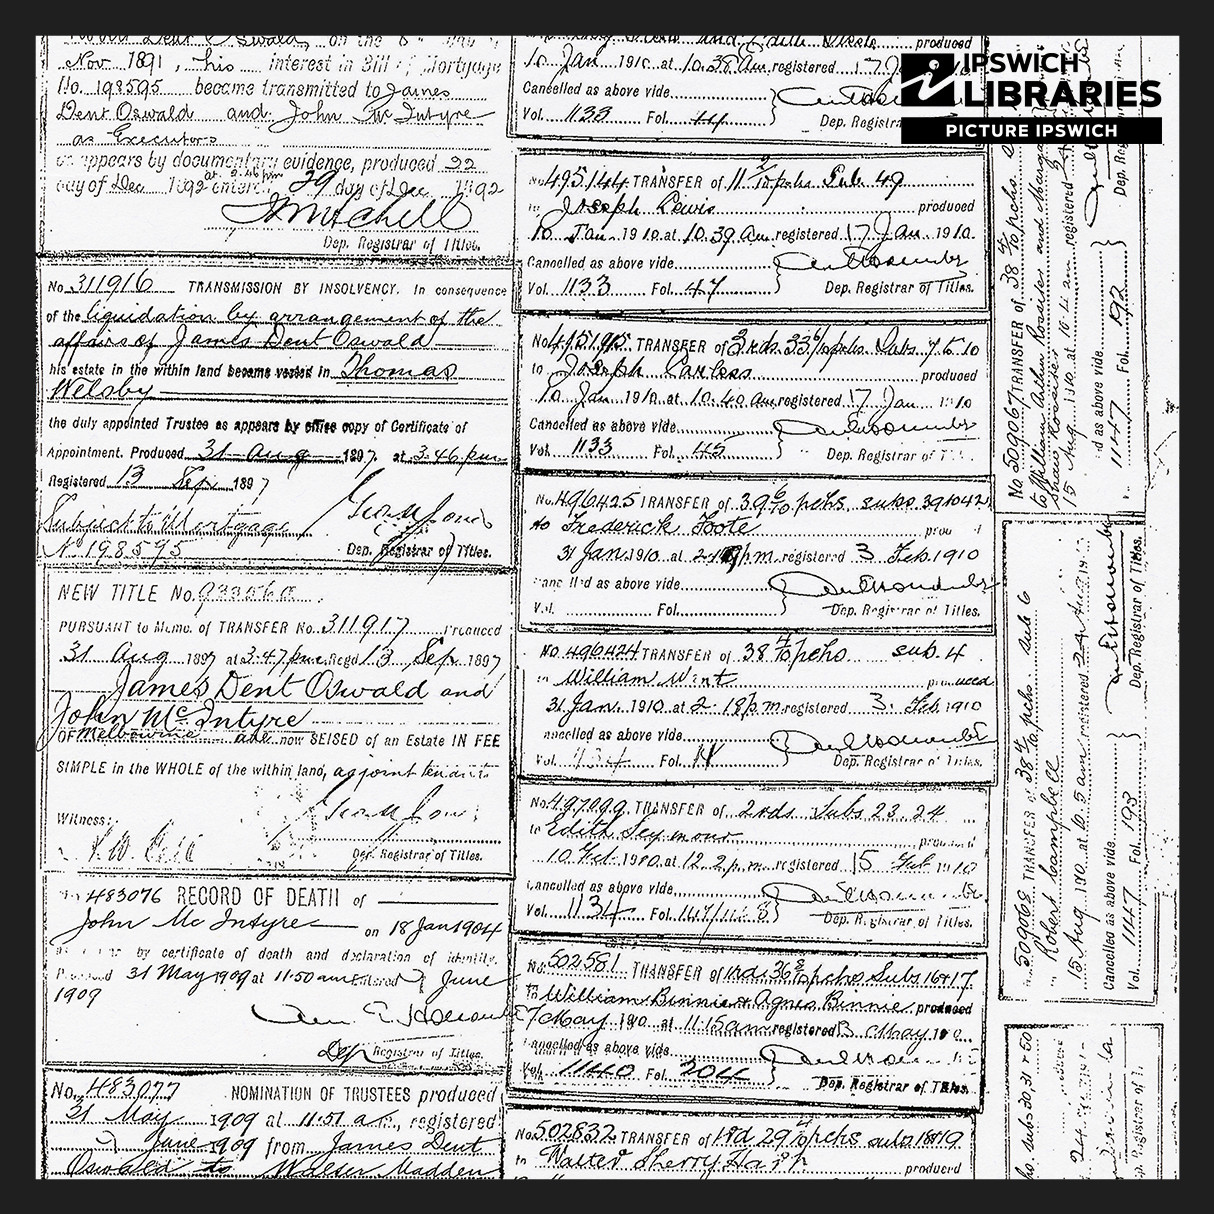 Nov 1891, his interest in Bill of Mortgage
No. 198595 became transmitted to James
Dent Oswald and John McIntyre
as Executors
as appears by documentary evidence, produced 22
day of Dec 1892 at 2.46 pm entered 29 day of Dec 1892
Dep. Registrar of Titles.
No 311916 TRANSMISSION BY INSOLVENCY. In consequence
of the liquidation by arrangement of the
affairs of James Dent Oswald
his estate in the within land became vested in Thomas
Welsby
the duly appointed Trustee as appears by office copy of Certificate of
Appointment. Produced 31 Aug 1897 at 3.46 pm
Registered 13 Sep 1897
Subject to Mortgage
No 198595
Dep. Registrar of Titles.
NEW TITLE No.
PURSUANT to Memo. of TRANSFER No. 311917 Produced
31 Aug 1897 at 3.47 pm Regd 13 Sep 1897
James Dent Oswald and
John McIntyre
OF Melbourne are now SEISED of an Estate IN FEE
SIMPLE in the WHOLE of the within land, as joint tenants
Witness:
Dep. Registrar of Titles.
No 483076 RECORD OF DEATH of
John McIntyre on 18 Jan 1904
by certificate of death and declaration of identity.
Produced 31 May 1909 at 11.50 am Entered 7 June
1909
Dep Registrar of Titles.
No. 483077 NOMINATION OF TRUSTEES produced
31 May 1909 at 11.51 a.m., registered
7 June 1909 from James Dent
Oswald to Walter Madden
produced
10 Jan 1910 at 10.38 Am registered 17
Cancelled as above vide
Vol. 1133 Fol. 44
Dep. Registrar
No 495144 TRANSFER of 11 2/10 pchs Sub 49
to Joseph Lewis produced
10 Jan 1910 at 10.39 Am registered 17 Jan 1910
Cancelled as above vide
Vol. 1133 Fol. 47 Dep. Registrar of Titles.
TRANSFER of 3 rds 33 6/10 pchs Subs 7 to 10
to Joseph Careless produced
10 Jan 1910 at 10.40 Am registered 17 Jan 1910
Cancelled as above vide
Vol. 1133 Fol. 45 Dep. Registrar of
No. 496425 TRANSFER of 39 6/10 pchs subs 39 to 42
to Frederick Foote
31 Jan 1910 at 2.19 pm registered 3 Feb 1910
Cancelled as above vide
Vol. Fol. Dep. Registrar of Titles.
No. 496424 TRANSFER of 38 4/10 pchs sub. 4
to William Went produced
31 Jan. 1910 at 2.18 p.m registered 3 Feb 1910
Cancelled as above vide
Vol. Fol. Dep. Registrar of Titles.
No. 497099 TRANSFER of 2 rds Subs 23.24
to Edith Seymour
10 Feb 1910 at 12.2 p.m. registered 15 Feb 1910
Cancelled as above vide
Vol. 1134 Fol. Dep. Registrar of Titles.
No. 502581 TRANSFER of 1 rd 36 8/10 pchs Subs 16 + 17
to William Binnie & Agnes Binnie produced
7 May 1910 at 11.15 am registered 13 May 1910
Cancelled as above vide
Vol. 1140 Fol. 204 Dep. Registrar of Titles.
No. 502832 TRANSFER of 1 rd 29 4/10 pchs subs 18 + 19
to Walter Sherry Hart produced
IPSWICH
LIBRARIES
PICTURE IPSWICH
No 509067 TRANSFER of 38 4/10 pchs
to William Arthur Rossiter and
15 Aug 1910 at 10.4 am registered
as above vide
1147 Fol. 192
Dep. Reg
509068 TRANSFER of 38 4/10 pchs sub 6
Robert Campbell
15 Aug 1910 at 10.5 am registered 24 Aug 19
Cancelled as above vide
Vol. 1147 Fol. 193
Dep. Registrar of Titles.
subs 30,31 + 50
Registrar of